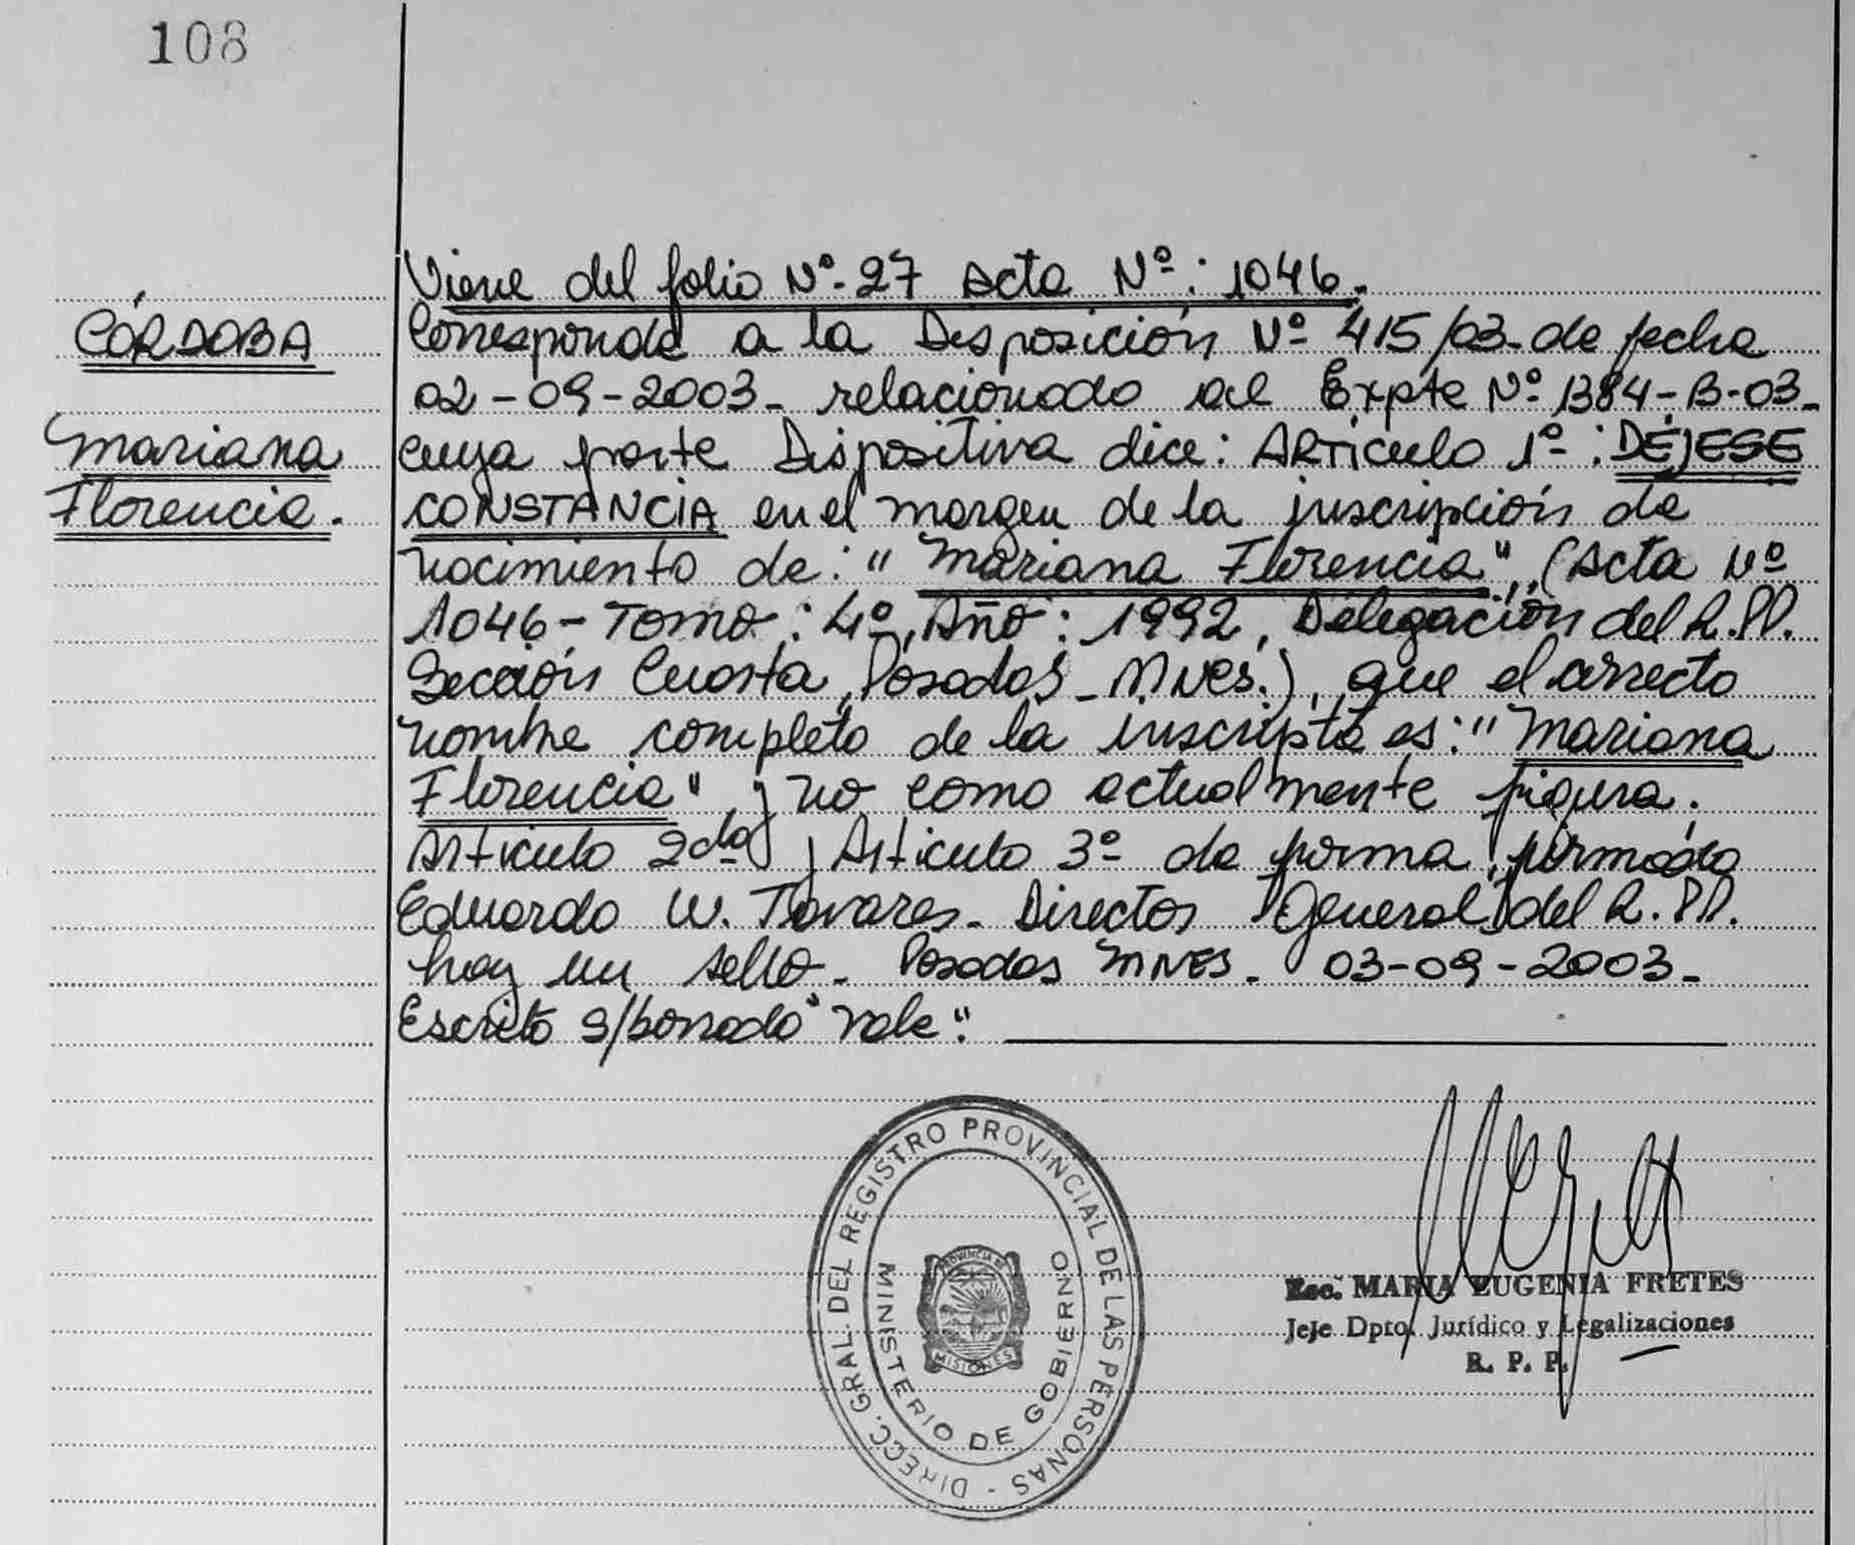 108
CÓRDOBA
Mariana
Florencia.
Viene del folio Nº-27 Acta Nº: 1046.
Corresponde a la Disposición Nº 415/03- de fecha
02-09-2003- relacionado al Expte Nº 1384-B-03-
cuya parte Dispositiva dice: ARTículo 1º-: DÉJESE
CONSTANCIA en el margen de la inscripción de
nacimiento de: "Mariana Florencia", (Acta Nº
1046- Tomo: 4º, Año: 1992, Delegación del R.PP.
Sección Cuarta, Posadas- MNES.), que el correcto
nombre completo de la inscripta es: "Mariana
Florencia" y no como actualmente figura.
Artículo 2do y Artículo 3º de forma, firmado
Eduardo W. Tavares- Director General del R.PP.
hay un sello- Posadas MNES- 03-09-2003-
Escrito s/borrado "Vale".
DIRECC. GRAL. DEL REGISTRO PROVINCIAL DE LAS PERSONAS -
MINISTERIO DE GOBIERNO
PROVINCIA DE
MISIONES
Esc. MARIA EUGENIA FRETES
Jefe Dpto. Jurídico y Legalizaciones
R. P. P.